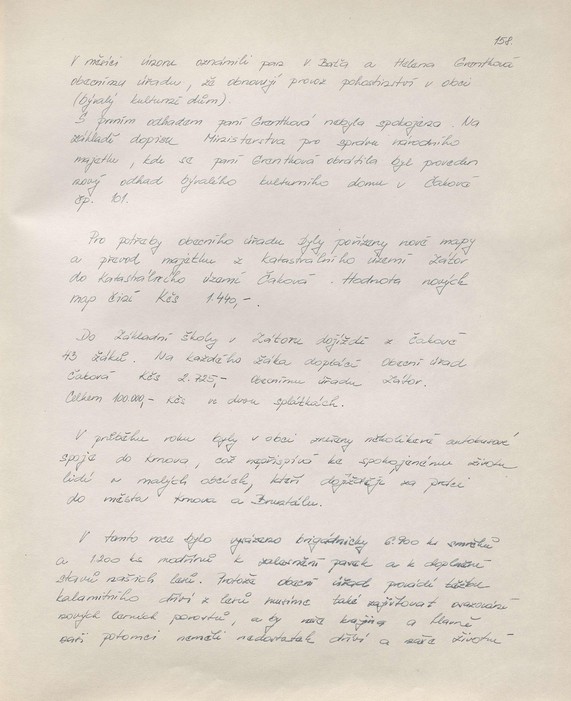 158.
V měsíci únoru oznámili pan V. Bašta a Helena Grantková
obecnímu úřadu, že obnovují provoz pohostinství v obci
(bývalý kulturní dům).
S prvním odhadem paní Grantková nebyla spokojena. Na
základě dopisu Ministerstva pro správu národního
majetku, kde se paní Grantková obrátila byl proveden
nový odhad bývalého kulturního domu v Čakové
čp. 101.
Pro potřeby obecního úřadu byly pořízeny nové mapy
a převod majetku z katastrálního území Zátor
do katastrálního území Čaková. Hodnota nových
map činí Kčs 1.440,-.
Do Základní školy v Zátoru dojíždí z Čakové
43 žáků. Na každého žáka doplácí Obecní úřad
Čaková Kčs 2.725,- Obecnímu úřadu Zátor.
Celkem 100.000,- Kčs ve dvou splátkách.
V průběhu roku byly v obci zrušeny několikeré autobusové
spoje do Krnova, což nepřispívá ke spokojenému životu
lidí v malých obcích, kteří dojíždějí za prací
do města Krnova a Bruntálu.
V tomto roce bylo vysázeno brigádnicky 6.900 ks smrků
a 1200 ks modřínů k zalesnění pasek a k doplnění
stavů našich lesů. Protože obecní úřad provádí těžbu
kalamitního dříví z lesů musíme také zajišťovat
nových lesních porostů, aby naše krajina a hlavně
naši potomci neměli nedostatek dříví a naše životní